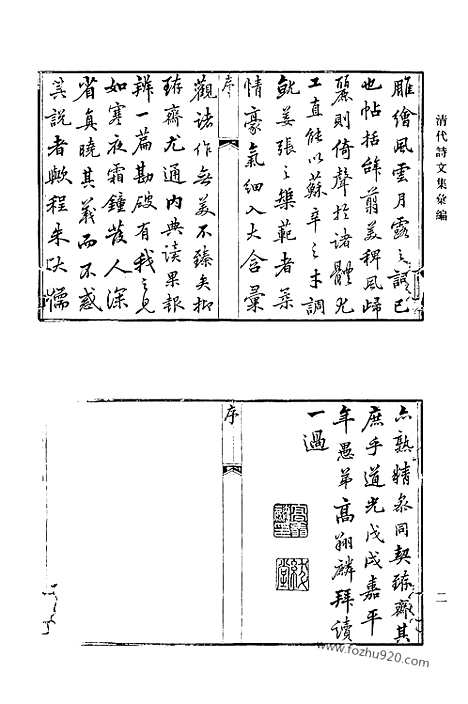 清代詩文集彙編
雕繪風雲月露之詞已
也帖括餘翦美稗風歸
麗則倚聲於諸體尤
工直能以蘇辛之才調
就姜張之榘範者柔
情豪氣細入大含彙
序
觀諸作無美不臻矣抑
齋尤通內典读果報
辨一篇勘破有我之見
如寒夜霜鐘發人深
省真曉其義而不惑
其說者歟程朱大儒
二
亦熟精參同契齋其
庶乎道光戊戌嘉平
年愚弟高翔麟拜讀
一過
序
www.fozhu920.com